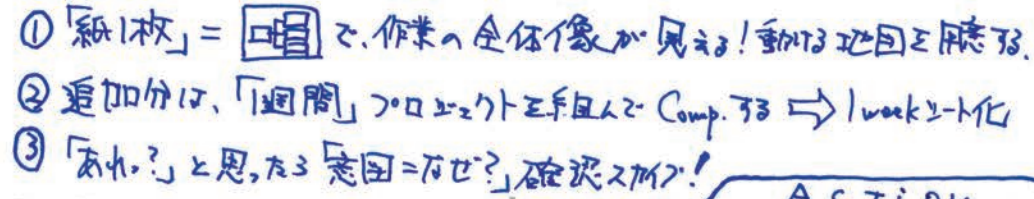 ①「紙1枚」= で、作業の全体像が見える!動ける地図を用意する.
②追加分は、「1週間」プロジェクトを組んで Comp. する ⇨ 1weekシート化
③「あれっ?」と思ったら「意図=なぜ?」確認スカイプ!
ACTION